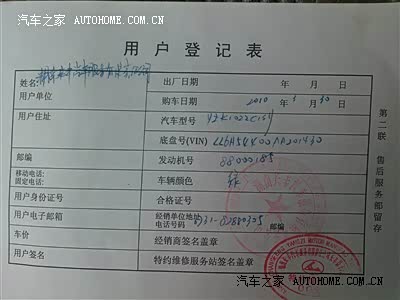 汽车之家 AUTOHOME.COM.CN
汽车之家 AUTOHOME.COM.CN
用户登记表
姓名:
出厂日期 年 月 日
用户单位
购车日期 2010 年 1 月 30 日
用户住址
汽车型号
底盘号(VIN)
邮编
发动机号 88000185
移动电话:
固定电话:
车辆颜色 绿
用户身份证号
合格证号
用户电子邮箱
经销单位地址
电话号码 0731-82880305 邮编
车价
经销商签名盖章
用户签名
特约维修服务站签名盖章
第二联 售后服务部留存
汽车之家 AUTOHOME.COM.CN